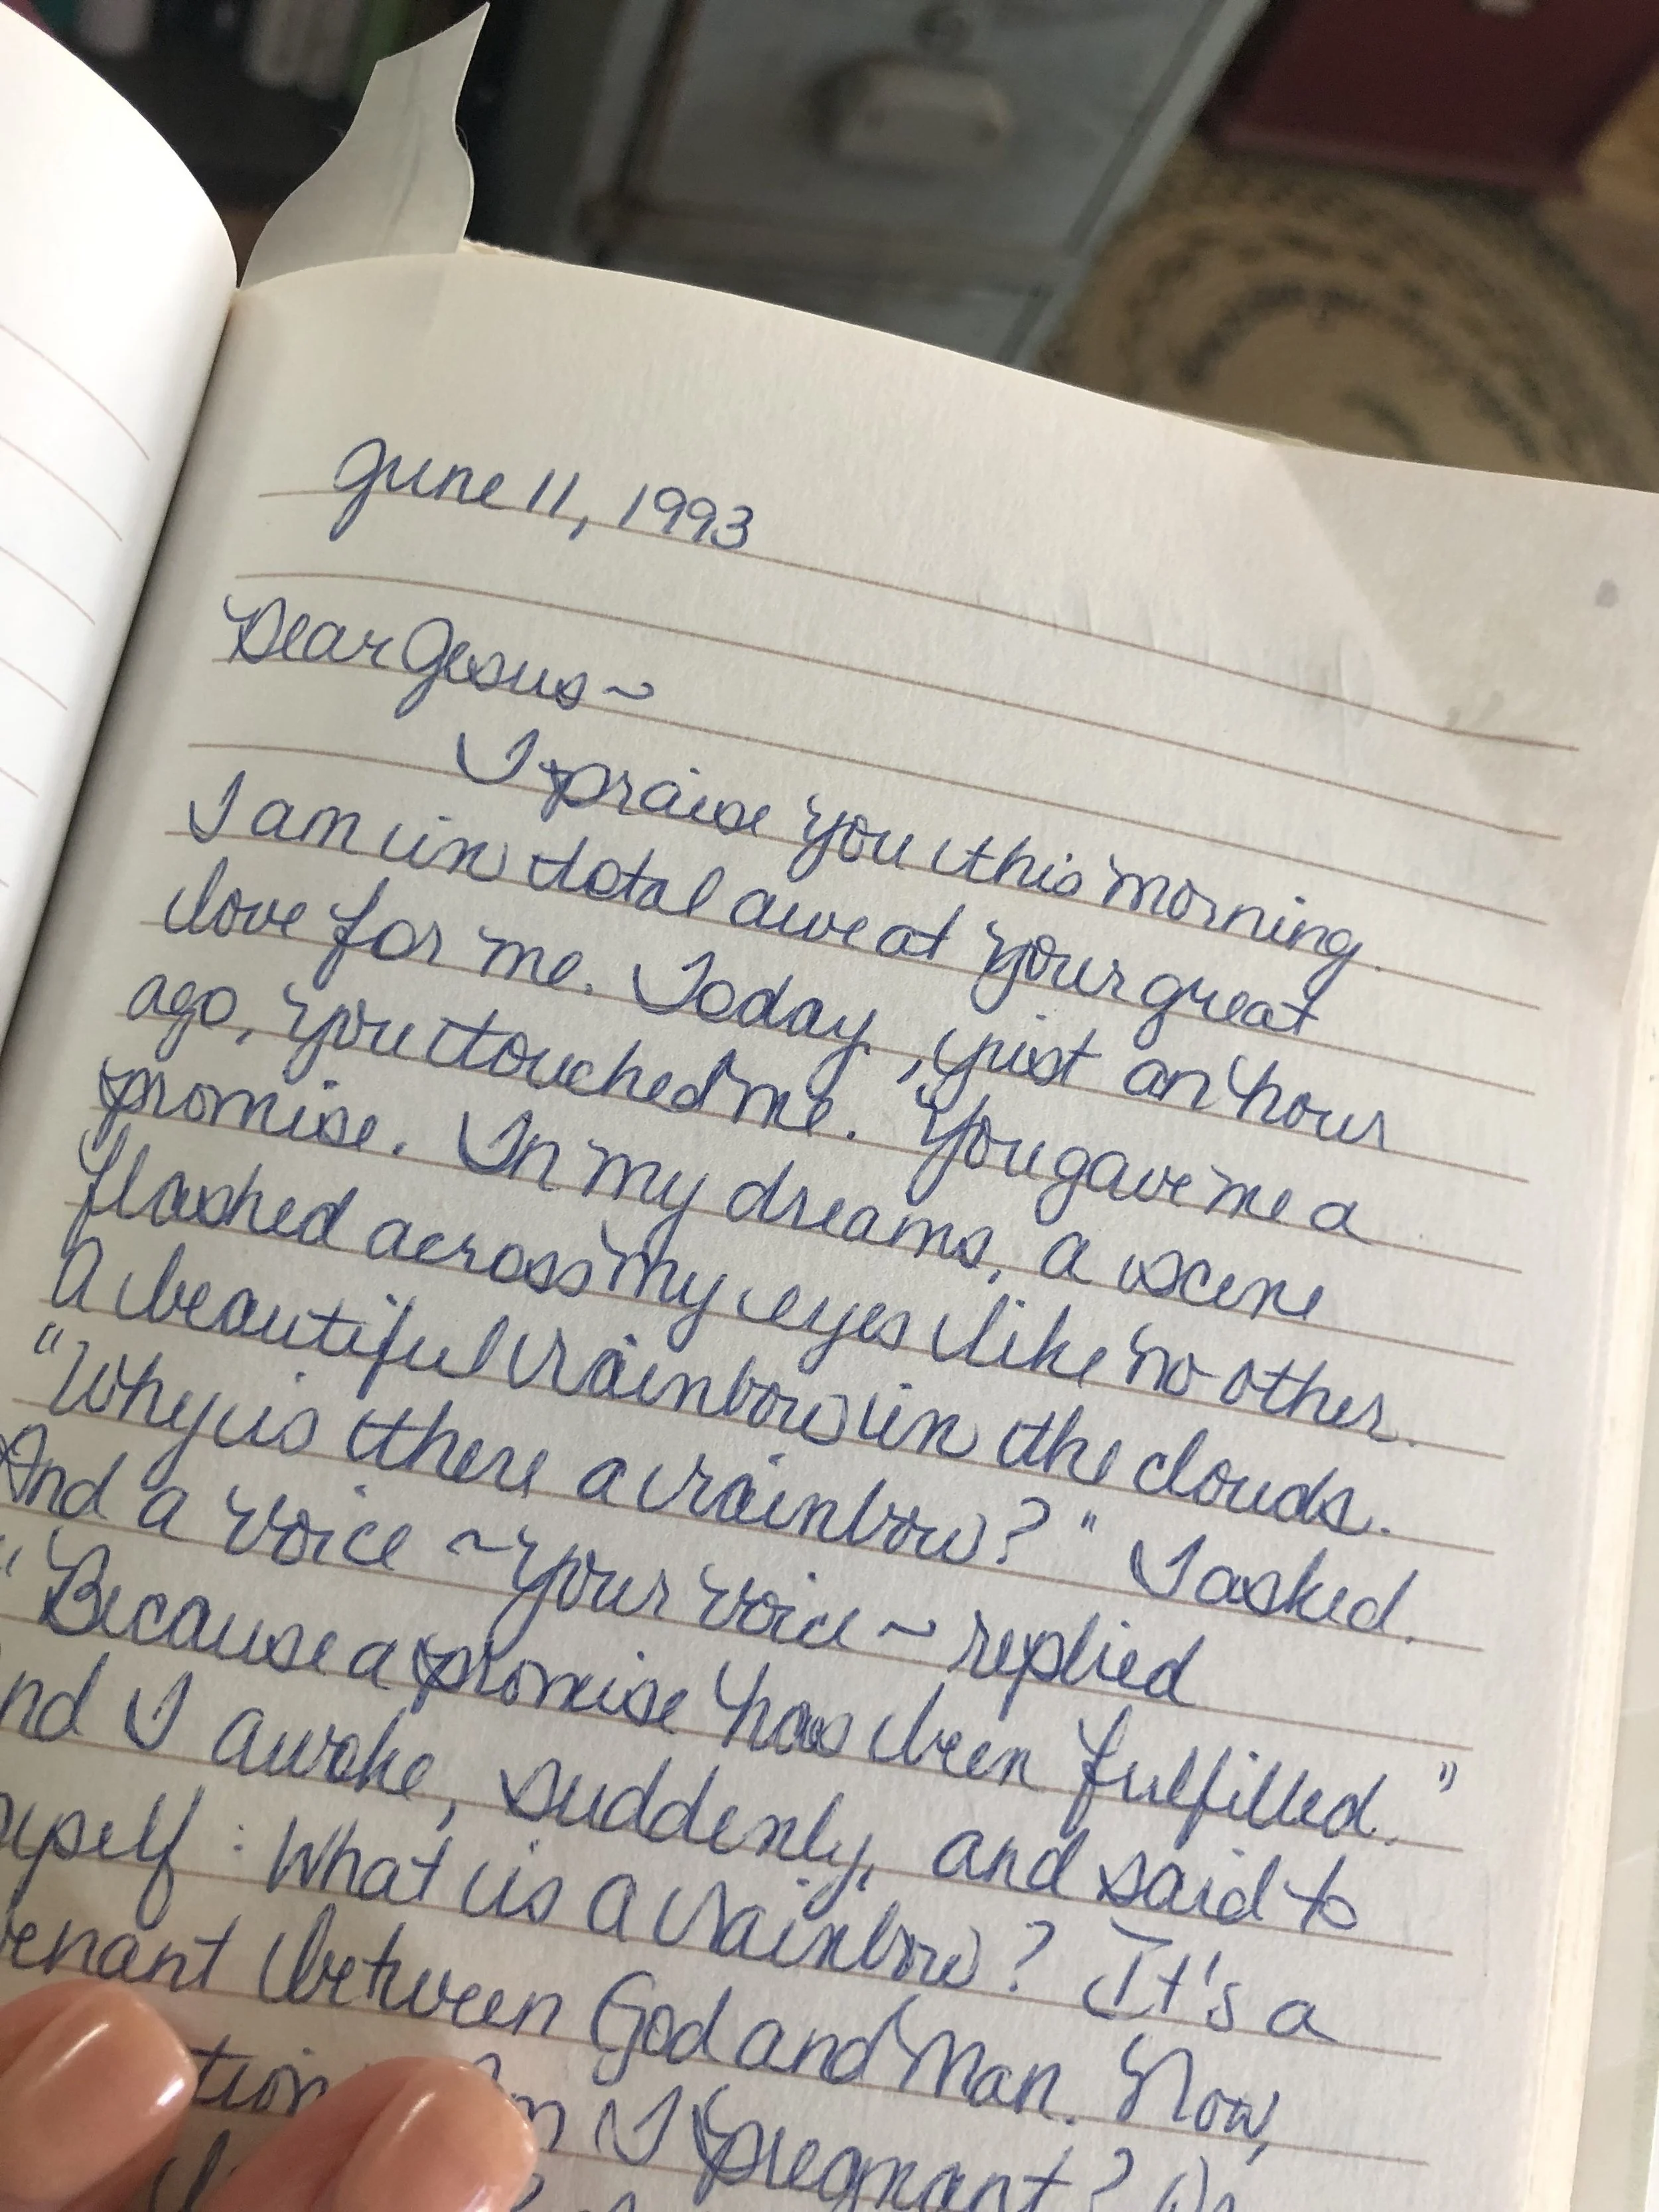 June 11, 1993
Dear Jesus ~
I praise you this morning.
I am in total awe at your great
love for me. Today, just an hour
ago, you touched me. You gave me a
promise. In my dreams, a scene
flashed across my eyes like no other.
A beautiful rainbow in the clouds.
"Why is there a rainbow?" I asked.
And a voice ~ your voice ~ replied
"Because a promise has been fulfilled."
nd I awoke, suddenly, and said to
yself: What is a rainbow? It's a
enant between God and Man. Now,
tion I pregnant?